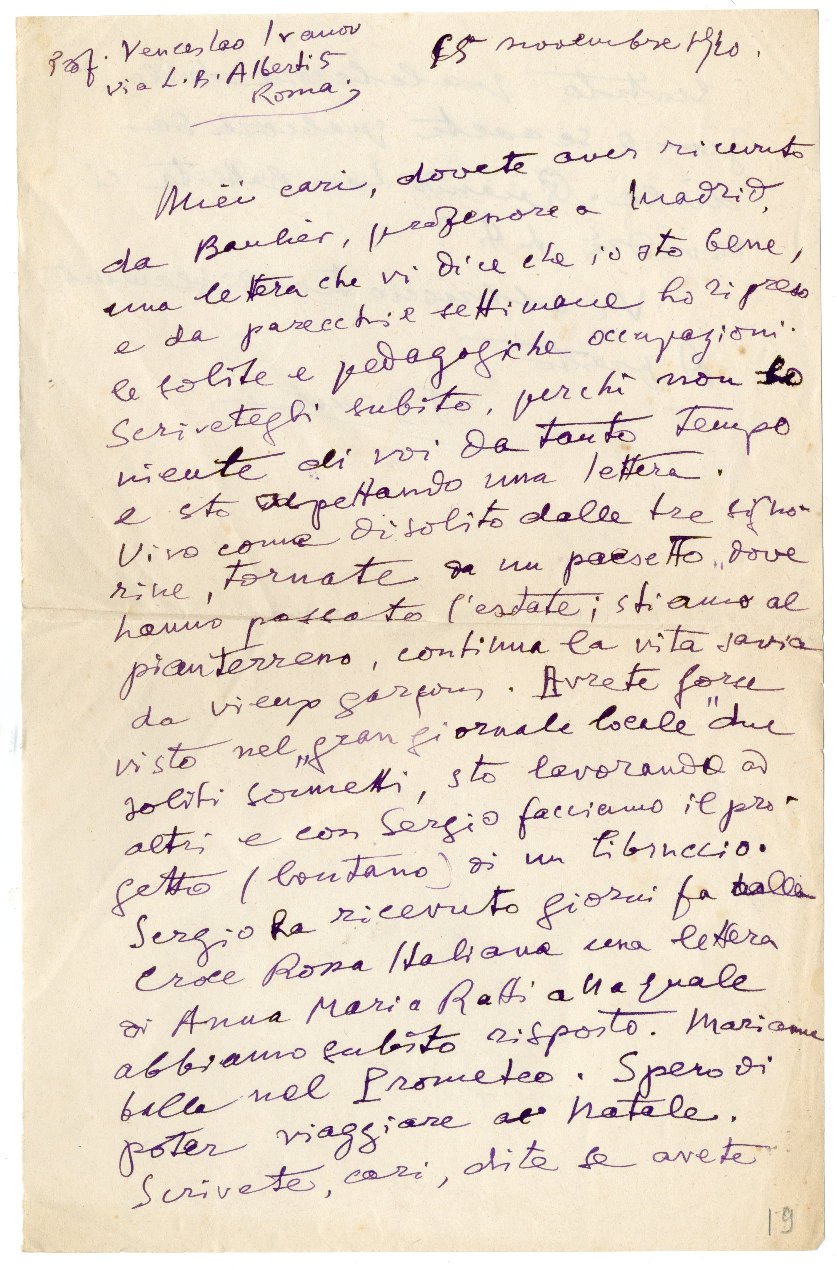 Prof. Venceslao Ivanov
via L. B. Alberti 5
Roma.
15 novembre 1940.
Miei cari, dovete aver ricevuto
da Baulier, professore a Madrid,
una lettera che vi dice che io sto bene,
e da parecchie settimane ho ripreso
le solite e pedagogiche occupazioni.
Scriveteghi subito, perchi non so
niente di voi da tanto tempo
e sto aspettando una lettera.
Vivo come di solito dalle tre signo-
rine, tornate da un paesetto dove
hanno passato l'estate; stiamo al
pianterreno, continua la vita savia
da vieux garçons. Avrete forse
visto nel „gran giornale locale" due
soliti sonnetti, sto lavorando ad
altri e con Sergio facciamo il pro-
getto (lontano) di un libruccio.
Sergio ha ricevuto giorni fa dalla
Croce Rossa Italiana una lettera
di Anna Maria Ratti alla quale
abbiamo subito risposto. Marianne
balla nel Prometeo. Spero di
poter viaggiare a Natale.
Scrivete, cari, dite se avete
19